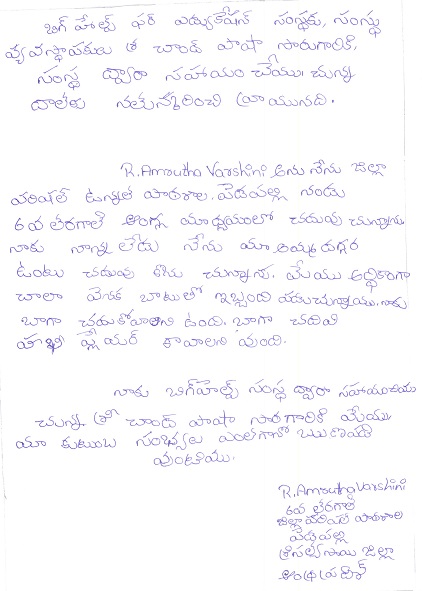 బిగ్ హెల్ప్ ఫర్ ఎడ్యుకేషన్ సంస్థకు, సంస్థ
వ్యవస్థాపకులు శ్రీ చాంద్ పాషా సారుగారికి,
సంస్థ ద్వారా సహాయం చేయు చున్న
దాతలకు నమస్కరించి వ్రాయునది.
R. Amrutha Varshini అను నేను జిల్లా
పరిషత్ ఉన్నత పాఠశాల. పెడపల్లి నందు
6వ తరగతి ఆంగ్ల మాధ్యమంలో చదువు చున్నాను
నాకు నాన్న లేడు నేను మా అమ్మ దగ్గర
ఉంటు చదువు కొను చున్నాను. మేము ఆర్థికంగా
చాలా వెనుక బాటులో ఇబ్బంది పడుచున్నాము. నాకు
బాగా చదుకోవాలని ఉంది. బాగా చదివి
ప్లేయర్ కావాలని వుంది.
నాకు బిగ్‌హెల్ప్ సంస్థ ద్వారా సహాయంచేయ
చున్న శ్రీ చాంద్ పాషా సారుగారికి మేము
మా కుటుంబ సంభ్యులు ఎంతగానో ఋణపడి
వుంటాము.
R. Amrutha Varshini
6వ తరగతి
జిల్లా పరిషత్ పాఠశాల
పెడపల్లి
శ్రీసత్యసాయి జిల్లా
ఆంధ్రప్రదేశ్